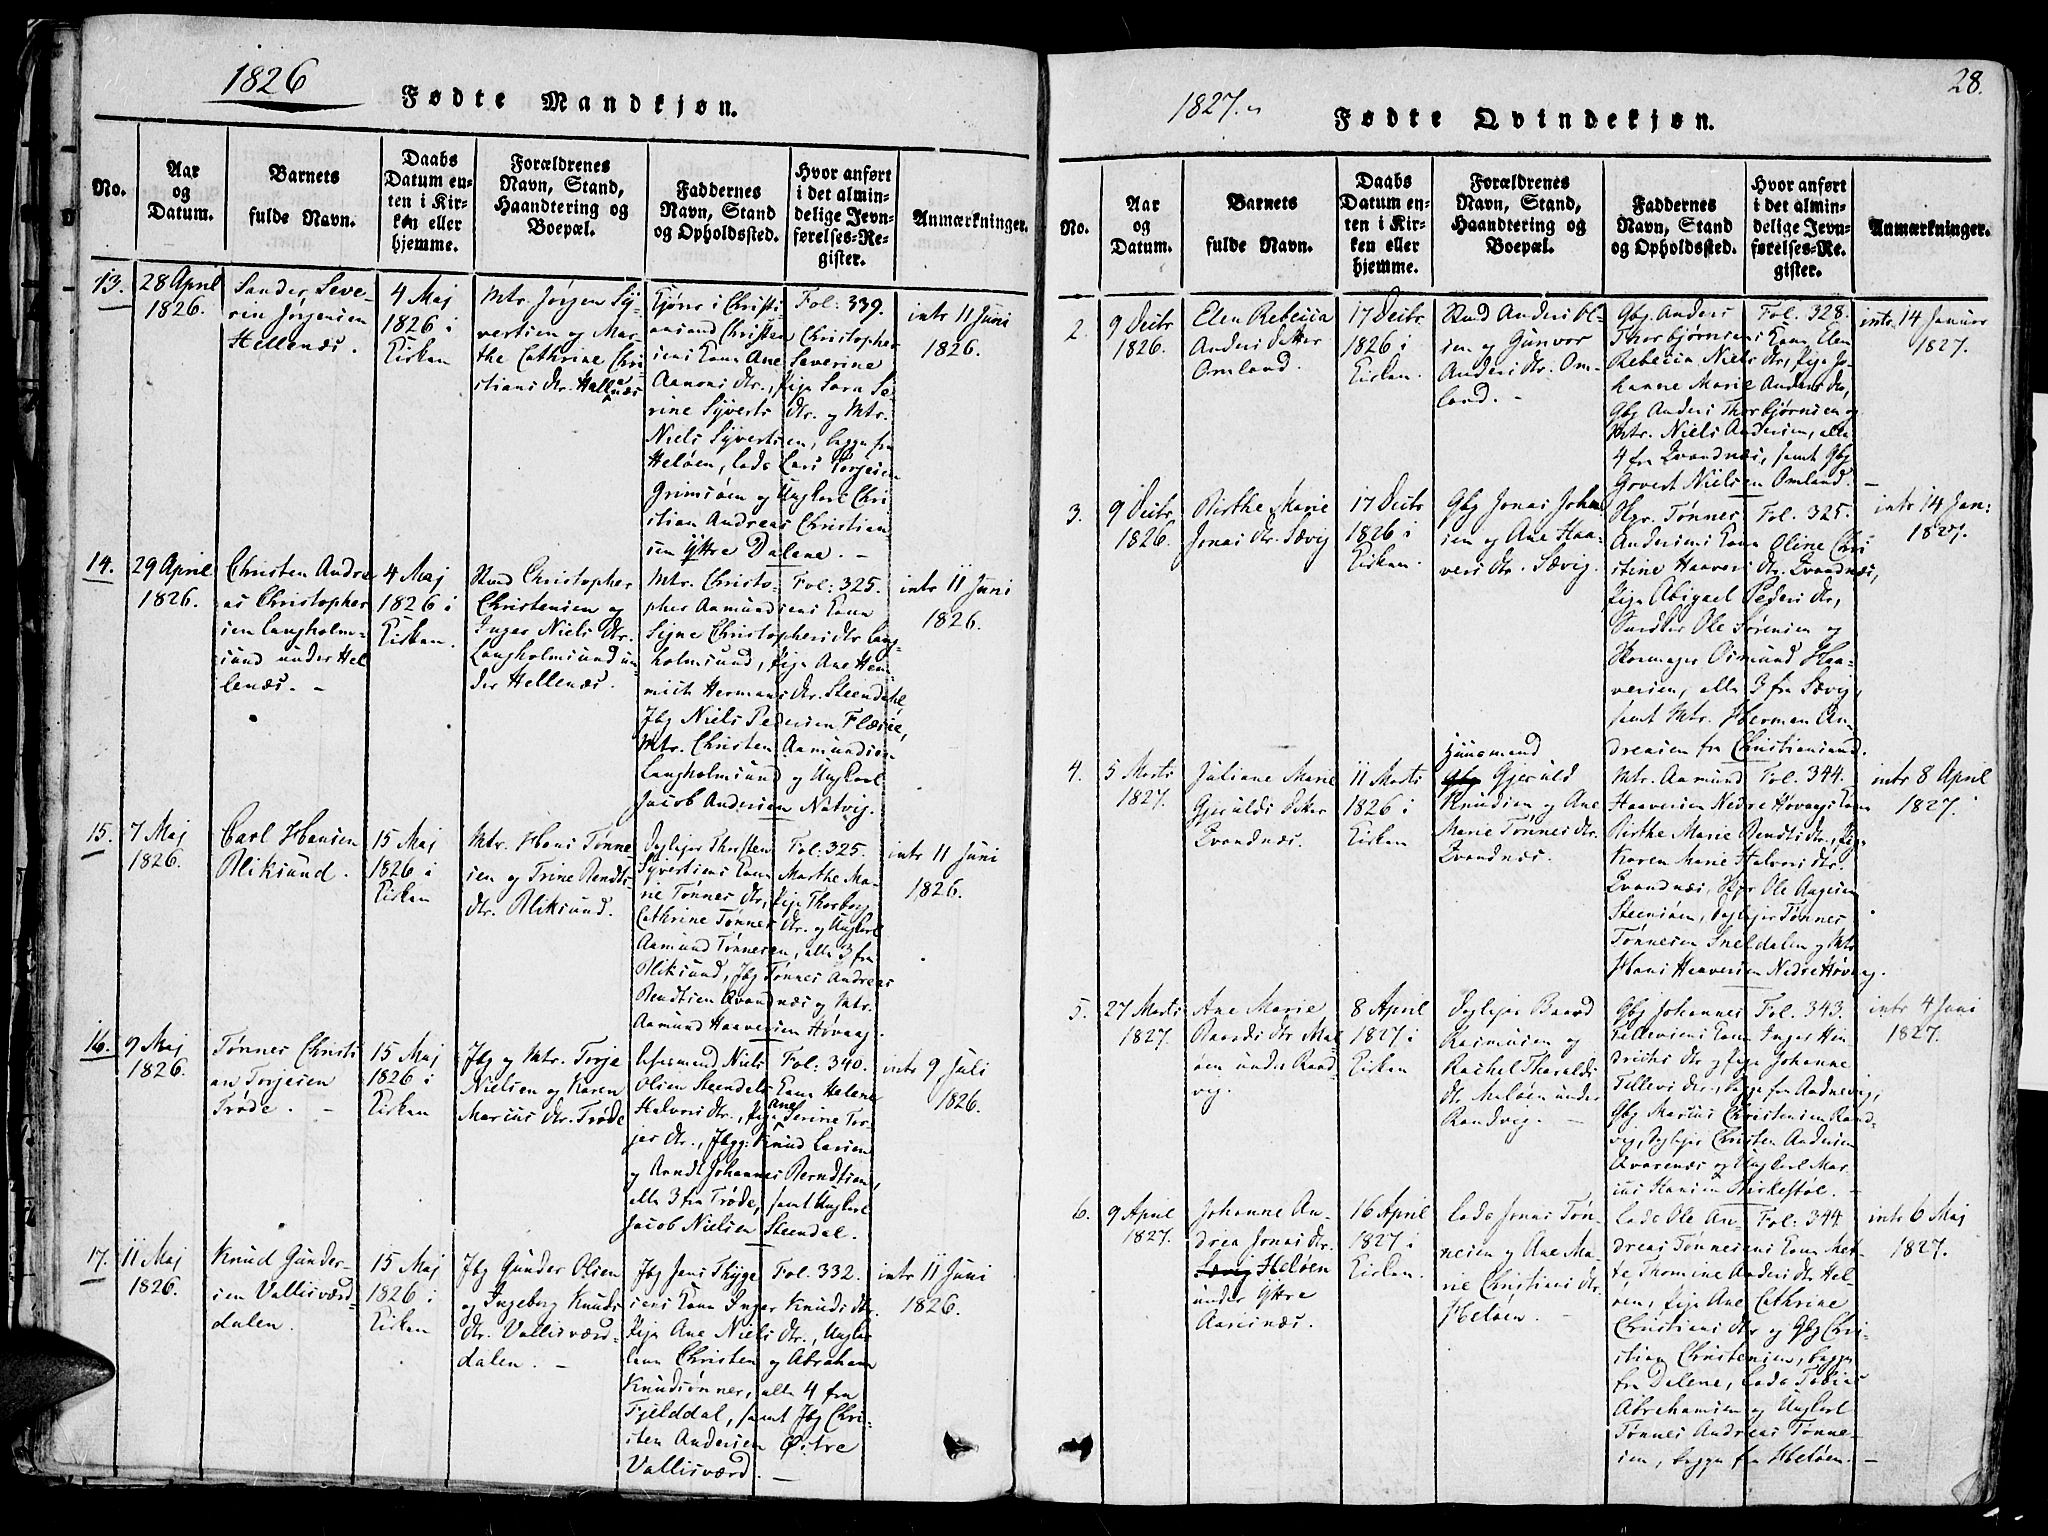 1826
Fødte Mandkjøn.
No.
Aar
og
Datum.
Barnets
fulde Navn.
Daabs
Datum en-
ten i Kir-
ken eller
hjemme.
Forældrenes
Navn, Stand,
Haandtering og
Boepæl.
Faddernes
Navn, Stand
og Opholdssted.
Hvor anført
i det almin-
delige Jevn-
førelses-Re-
gister.
Anmærkninger.
13.
28 April
1826.
Sander Seve-
rin Jørgensen
Hellenæs.
4 Maj
1826 i
Kirken
Mtr. Jørgen Sy-
vertsen og Mar-
the Cathrine Chri-
stians dtr. Hellenæs
Fol: 339.
Aanons dtr., Pige Sara Se-
rine Syverts dtr. og Mtr.
Niels Syvertsen, begge fra
Heløen, Lods Lars Torjesen
Grimsøen og Ungkarl Chri-
stian Andreas Christian
sen Yttre Dalene. -
intr 11 Juni
1826.
14.
29 April
1826.
Christen Andre
as Christopher
sen Langholm-
sund under Hel
lenæs. -
4 Maj
1826 i
Kirken.
Christopher
Christensen og
Inger Niels dtr.
Langholmsund un-
der Hellenæs.
Mtr. Christo-
pher Aamundsens Kone
Signe Christophers dtr Lang-
holmsund, Pige Ane Hen-
rich Hermans dtr. Steendahl,
Jbg Niels Pedersen Flæsie,
Mtr. Christen Aamundsen
Langholmsund og Ungkarl
Jacob Andersen Natvig.
Fol: 325.
intr 11 Juni
1826.
15.
7 Maj
1826.
Carl Hansen
Bliksund.
15 Maj
1826 i
Kirken
Mtr. Hans Tønne-
sen og Trine Bendts
dtr. Bliksund.
Thorsten
Syvertsens Kone Marthe Ma-
rie Tønnes dtr, Pige Thorborg
Cathrine Tønnes dtr. og Ungkarl
Aamund Tønnesen, alle 3 fra
Bliksund, Jbg Tønnes Andreas
Bendtsen Qvandnæs og Mtr.
Aamund Haaversen Høvaag.
Fol: 325.
intr 11 Juni
1826.
16.
9 Maj
1826.
Tønnes Christi
an Torjesen
Trøde. -
15 Maj
1826 i
Kirken
Jbg og Mtr. Torje
Nielsen og Karen
Marcus dtr. Trøde
Niels
Olsen Steendals Kone Helene
Halvors dtr., Pige Ane Serine Tor-
jes dtr., Jbgg: Knud Larsen
og Arndt Johannes Berndtsen,
alle 3 fra Trøde, samt Ungkarl
Jacob Nielsen Steendal.
Fol: 340.
intr 9 Juli
1826.
17.
11 Maj
1826.
Knud Gunder-
sen Vallisværd-
dalen.
15 Maj
1826 i
Kirken
Jbg Gunder Olsen
og Ingeborg Knuds
dtr. Vallisværd-
dalen. -
Jbg Jens Thyge
sens Kone Inger Knuds dtr.
Pige Ane Niels dtr., Ungkar-
lene Christen og Abraham
Knudsønner, alle 4 fra
Fjelddal, samt Jbg Chri-
sten Andersen Østre
Vallisværd. -
Fol: 332.
intr 11 Juni
1826.
28.
1827.
Fødte Qvindekjøn.
No.
Aar
og
Datum.
Barnets
fulde Navn.
Daabs
Datum en-
ten i Kir-
ken eller
hjemme.
Forældrenes
Navn, Stand,
Haandtering og
Boepæl.
Faddernes
Navn, Stand
og Opholdssted.
Hvor anført
i det almin-
delige Jevn-
førelses-Re-
gister.
Anmærkninger.
2.
9 Decbr
1826.
Elen Rebecca
Anders datter
Omland.
17 Decbr
1826 i
Kirken.
Anders Ol-
sen og Gunvor
Anders dtr. Om-
land. -
Gbg. Anders
Thorbjørnsens Kone, Elen
Rebecca Niels dtr, Pige Jo-
hanne Marie Anders dtr,
Gbg Anders Thorbjørnsen og
Mtr. Niels Andersen, alle
4 fra Qvandnæs, samt Gbg
Govert Nielsen Omland. -
Fol. 328.
intr. 14 Januar
1827.
3.
9 Decbr
1826.
Birthe Marie
Jonas dtr. Sævig
17 Decbr
1826 i
Kirken.
Gbg Jonas Johan-
sen og Ane Haa-
vers dtr. Sævig.
Tønnes
Andersens Kone Oline Chri
stine Haavers dtr. Qvandnæs,
Pige Abigael Peders dtr,
Ole Sørensen og
Skomager Osmund Haa-
versen, alle 3 fra Sævig,
samt Mtr. Herman An-
dreasen fra Christiansand.
Fol. 325.
intr 14 Jan:
1827.
4.
5 Marts
1827.
Juliane Marie
Gjerulds datter
Qvandnæs.
11 Marts
1826 i
Kirken
Huusmand
Gbg Gjeruld
Knudsen og Ane
Marie Tønnes dtr.
Qvandnæs.
Mtr. Aamund
Haaversen Nedre Høvaags Kone
Birthe Marie Bendts dtr, Pige
Karen Marie Halvors dtr.
Qvandnæs, Ole Aagesen
Steensøen, Tønnes
Tønnesen Sneldalen og Mtr
Hans Haaversen Nedre Høvaag.
Fol. 344.
intr 8 April
1827.
5.
27 Marts
1827.
Ane Marie
Baards dtr Mal-
øen under Rand-
vig.
8 April
1827 i
Kirken
Baard
Rasmusen og
Rachel Tharalds
dtr Maløen under
Randvig. -
Gbg Johannes
Tellevsens Kone Inger Hen-
drichs dtr og Pige Johanne
Tellevs dtr, begge fra Aadnevig,
Gbg Marcus Christensen Rand-
vig, Christen Andersen
Qvarenæs og Ungkarl Mar-
cus Hansen Birkestøl. -
Fol. 343.
intr 4 Juni
1827.
6.
9 April
1827.
Johanne An-
drea Jonas dtr.
Sævig Heløen
under Yttre
Aarsnæs.
16 April
1827 i
Kirken.
Lods Jonas Tøn-
nesen og Ane Ma-
rie Christians dtr.
Heløen. -
Lods Ole An-
dreas Tønnesens Kone Met-
te, Thomine Anders dtr Hel-
øen, Pige Ane Cathrine
Christians dtr og Gbg Chri-
stian Christensen, begge
fra Dalene, Lods Tobias
Abrahamsen og Ungkarl
Tønnes Andreas Tønne-
sen, begge fra Heløen. -
Fol: 344
intr 6 Maj
1827.